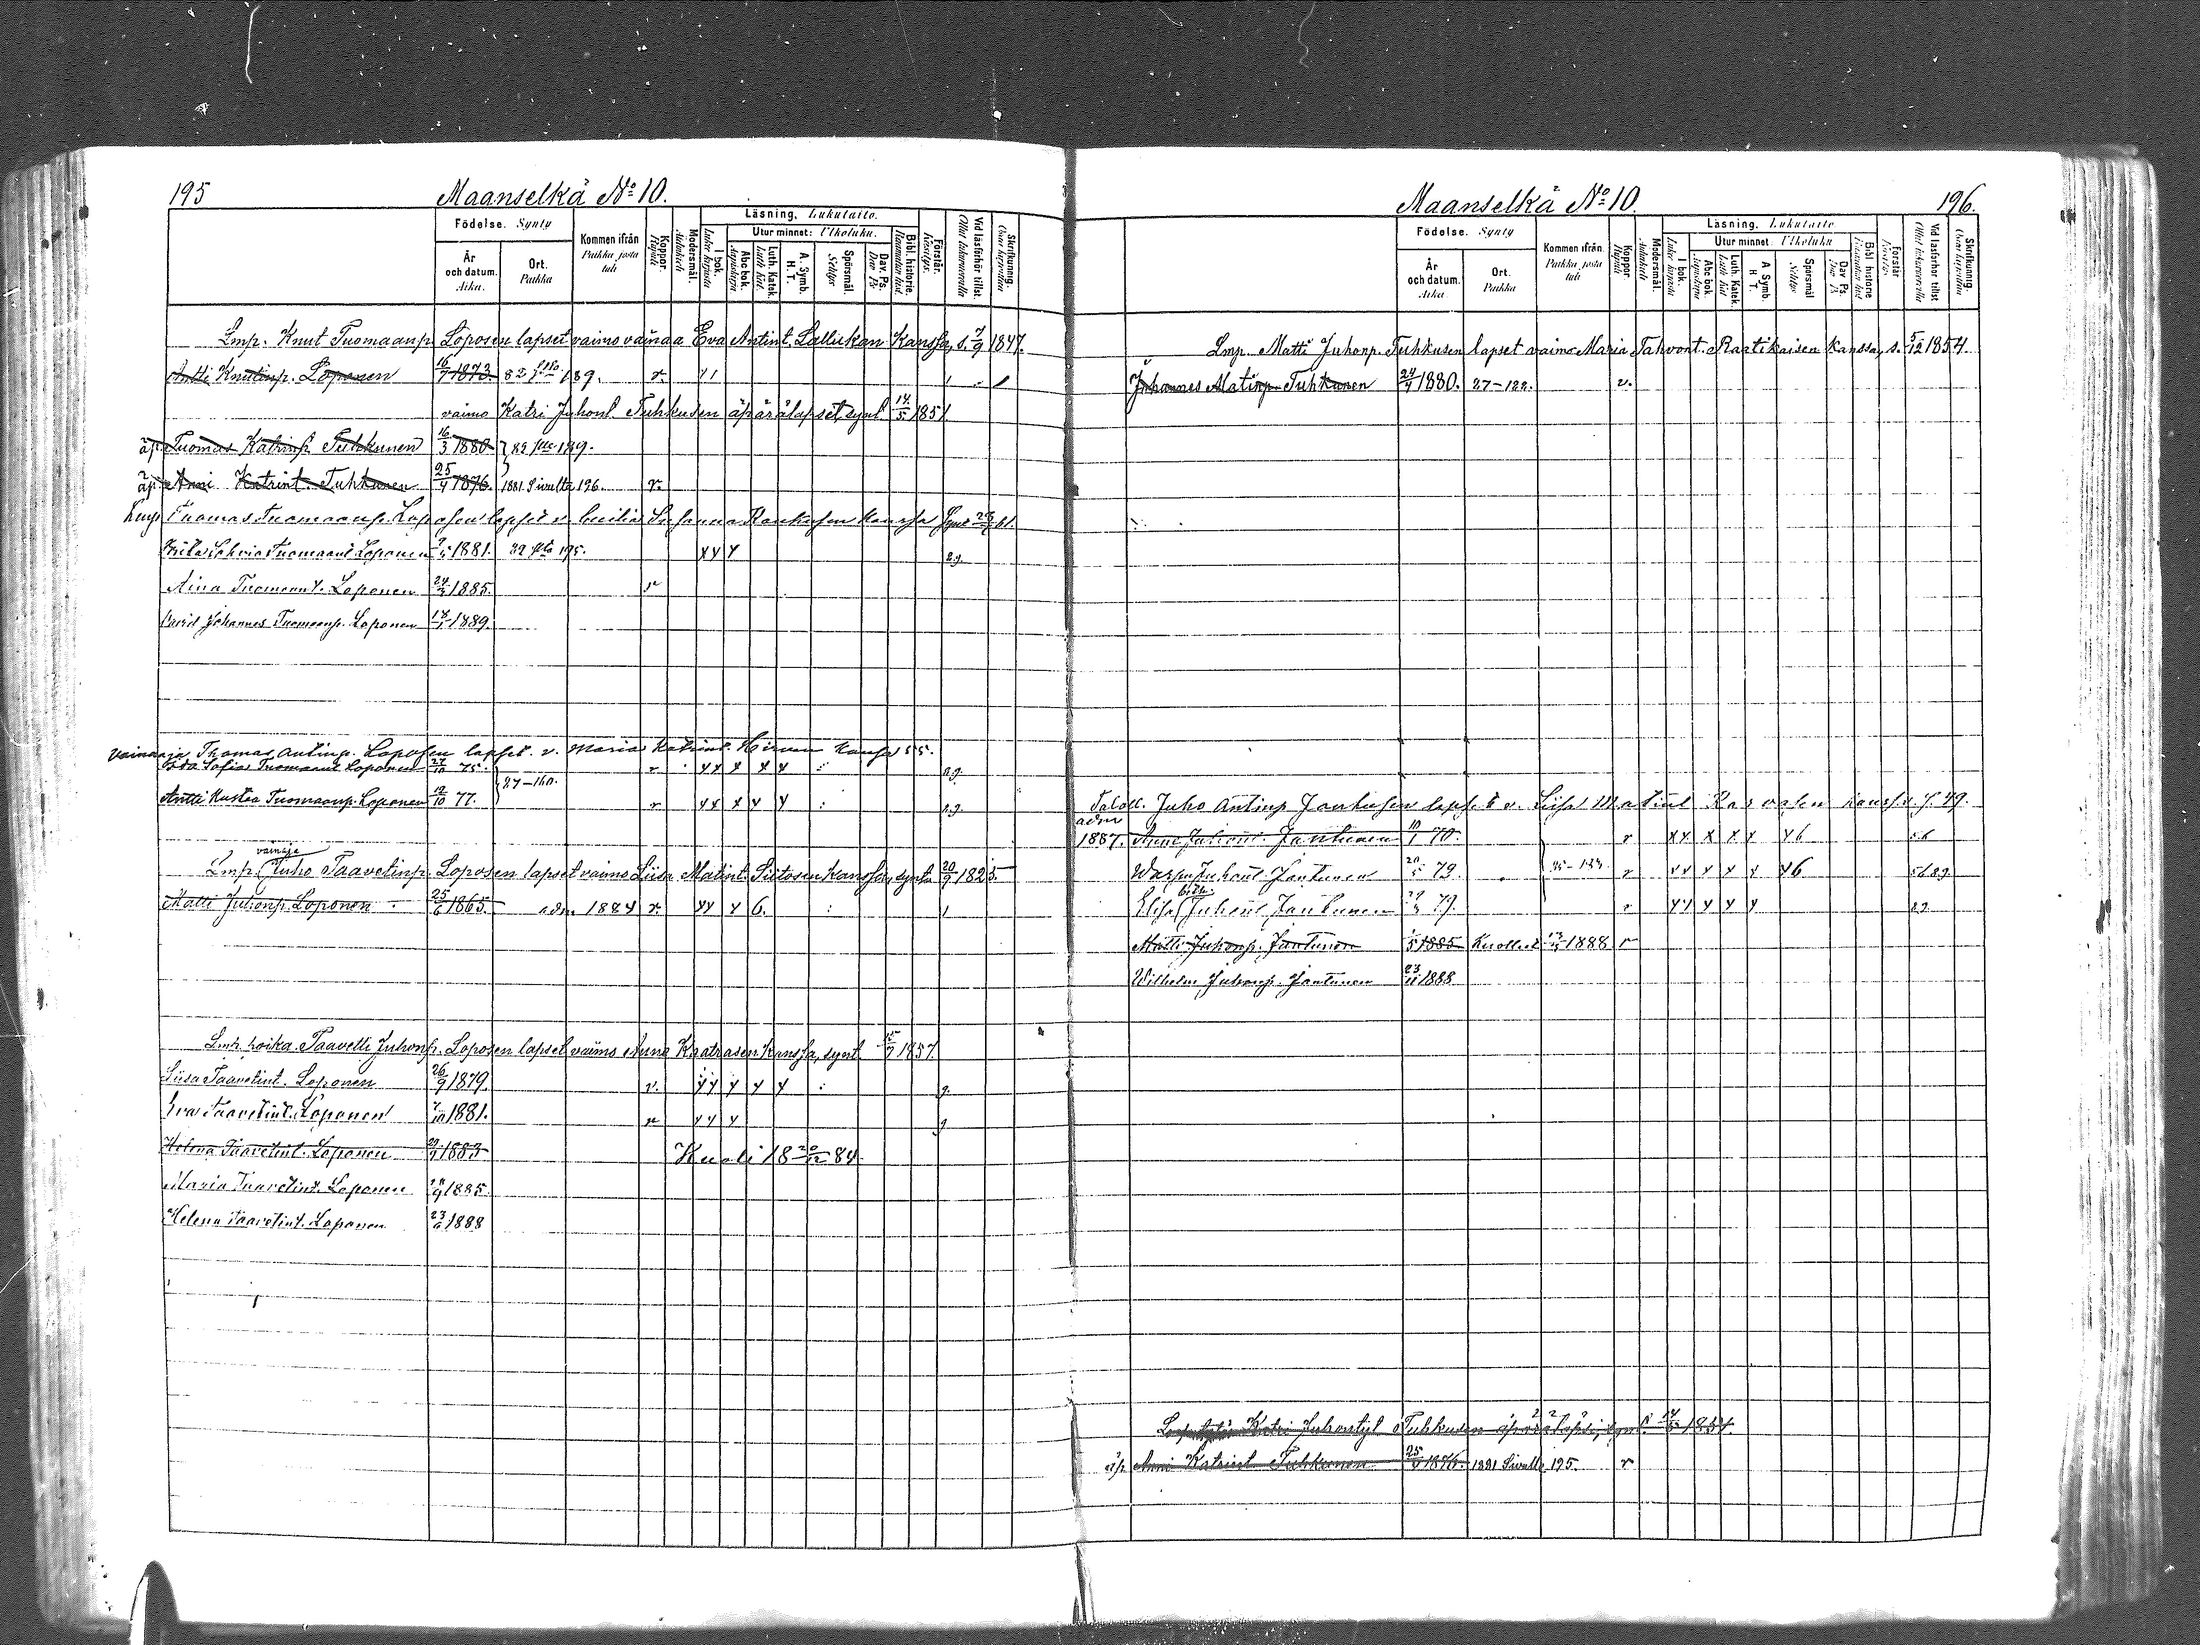 195
Maanselkä No 10.
Födelse. Synty
År och datum. Aika.
Ort. Paikka
Kommen ifrån Paikka josta tuli
Koppor. Rupuli
Modersmål. Äidinkieli
Läsning. Lukutaito.
I bok. Luku kirjasta
Utur minnet: Ulkoluku.
Abc-bok. Aapiskirja
Luth. Katek. Luth. Kat.
A. Symb. H. T.
Spörsmål. Selitys
Dav. Ps. Dav. Ps
Bibl. historie. Raamatun hist.
Förstår. Käsitys.
Vid läsförhör tillst. Ollut lukuvuorolla
Skrifkunnig. Osaa kirjoittaa
Lmp. Knut Tuomaanp. Loposen lapset vaimo vainaa Eva Antint. Lallukan Kanssa, s. 7/9 1847.
Antti Knutinp. Loponen 16/7 1873. 82 189. r. 11
vaimo Katri Juhont. Tuhkusen äpärälapset, synt. 14/5 1851
äp. Tuomas Katrinp. Tuhkunen 16/3 1880 82 189.
äp. Anni Katrint. Tuhkunen 25/4 1876. 1881 Sivulta 196. r.
Lmp Tuomas Tuomaanp. Loposen lapset v. Cecilia Susanna Kanssa Synt 61.
Tuomaant Loponen 1881. 82 195. x x x 89
Aina Tuomaant. Loponen 24 1885. r
David Johannes Tuomaanp. Loponen 1889.
Vainaaja Thomas Antinp. Loposen lapset. v. Maria Katrint. Hirvon Kanssa 55.
Ida Sofia Tuomaant Loponen 27/10 75. r x x x x x 89
Antti Kustaa Tuomaanp. Loponen 19/10 77. 87-160. r x x x x x 89
Lmp. vainaja Juho Taavetinp. Loposen lapset vaimo Liisa Matint. Siitosen Kanssa, synt. 20/9 1825.
Matti Juhonp. Loponen 25/6 1865. adm 1884 r. x x x 6.
Lmp. poika Taavetti Juhonp. Loposen lapset vaimo Anna Kaatrasen Kanssa, synt. 1857
Liisa Taavetint. Loponen 26/9 1879. r. x x x x x 9.
Eva Taavetint. Loponen 7/10 1881. r x x x 9
Helena Taavetint. Loponen 1883 Kuoli 18 20/12 84
Maria Taavetint. Loponen 1885.
Helena Taavetint. Loponen 23/6 1888
Maanselkä No 10.
196.
Födelse. Synty
År och datum. Aika
Ort. Paikka
Kommen ifrån. Paikka josta tuli
Koppor Rupuli
Modersmål. Äidinkieli
Läsning. Lukutaito
I bok. Luku kirjasta
Utur minnet: Ulkoluku
Abc bok. Aapiskirja
Luth. Katek. Luth Kat
A Symb. H T.
Spörsmål Selitys
Dav Ps. Dav Ps
Bibl historie Raamatun hist
Förstår. Käsitys.
Vid läsförhör tillst Ollut lukuvuorolla
Skrifkunnig. Osaa kirjoittaa
Lmp. Matti Juhonp. Tuhkusen lapset vaimo Maria Tahvont. Raatikaisen kanssa, s. 5/12 1854.
Johannes Matinp. Tuhkunen 24/4 1880. 27-122. v.
Taloll. Juho Antinp Jantusen lapset v. Liisa Matint Karvasen kanss. s. 49.
adm 1887. Anni Juhont. Jantunen 10/1 70. r x x x x x x6 86
Warpu Juhont. Jantunen 20/5 73. r x x x x x x6 86.89
Elisa Juhont Jantunen 79. r x x x x x 89
Matti Juhonp. Jantunen 1/5 1885 Kuollut 1888 r
Wilhelm Juhonp. Jantunen 23/11 1888
Katri Juhontyt Tuhkusen äpärälapsi, synt. 14/5 1851
äp Anni Katrint Tuhkunen 25/4 1876. 1881 Sivulle 195. r